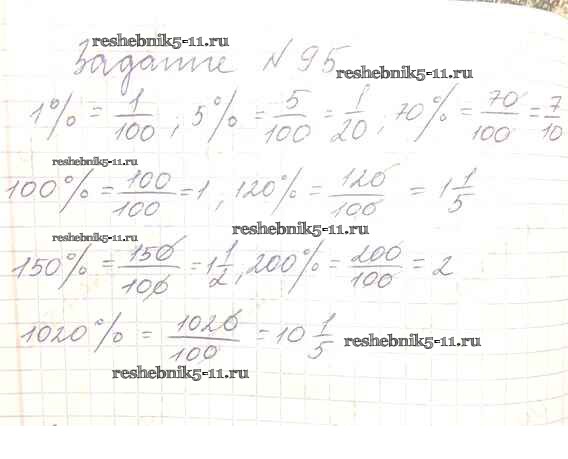 reshebnik5-11.ru
Задание N 95
reshebnik5-11.ru
1% = 1/100 ; 5% = 5/100 = 1/20 ; 70% = 70/100 = 7/10
reshebnik5-11.ru
100% = 100/100 = 1 , 120% = 120/100 = 1 1/5
reshebnik5-11.ru
reshebnik5-11.ru
150% = 150/100 = 1 1/2 , 200% = 200/100 = 2
1020% = 1020/100 = 10 1/5
reshebnik5-11.ru
reshebnik5-11.ru